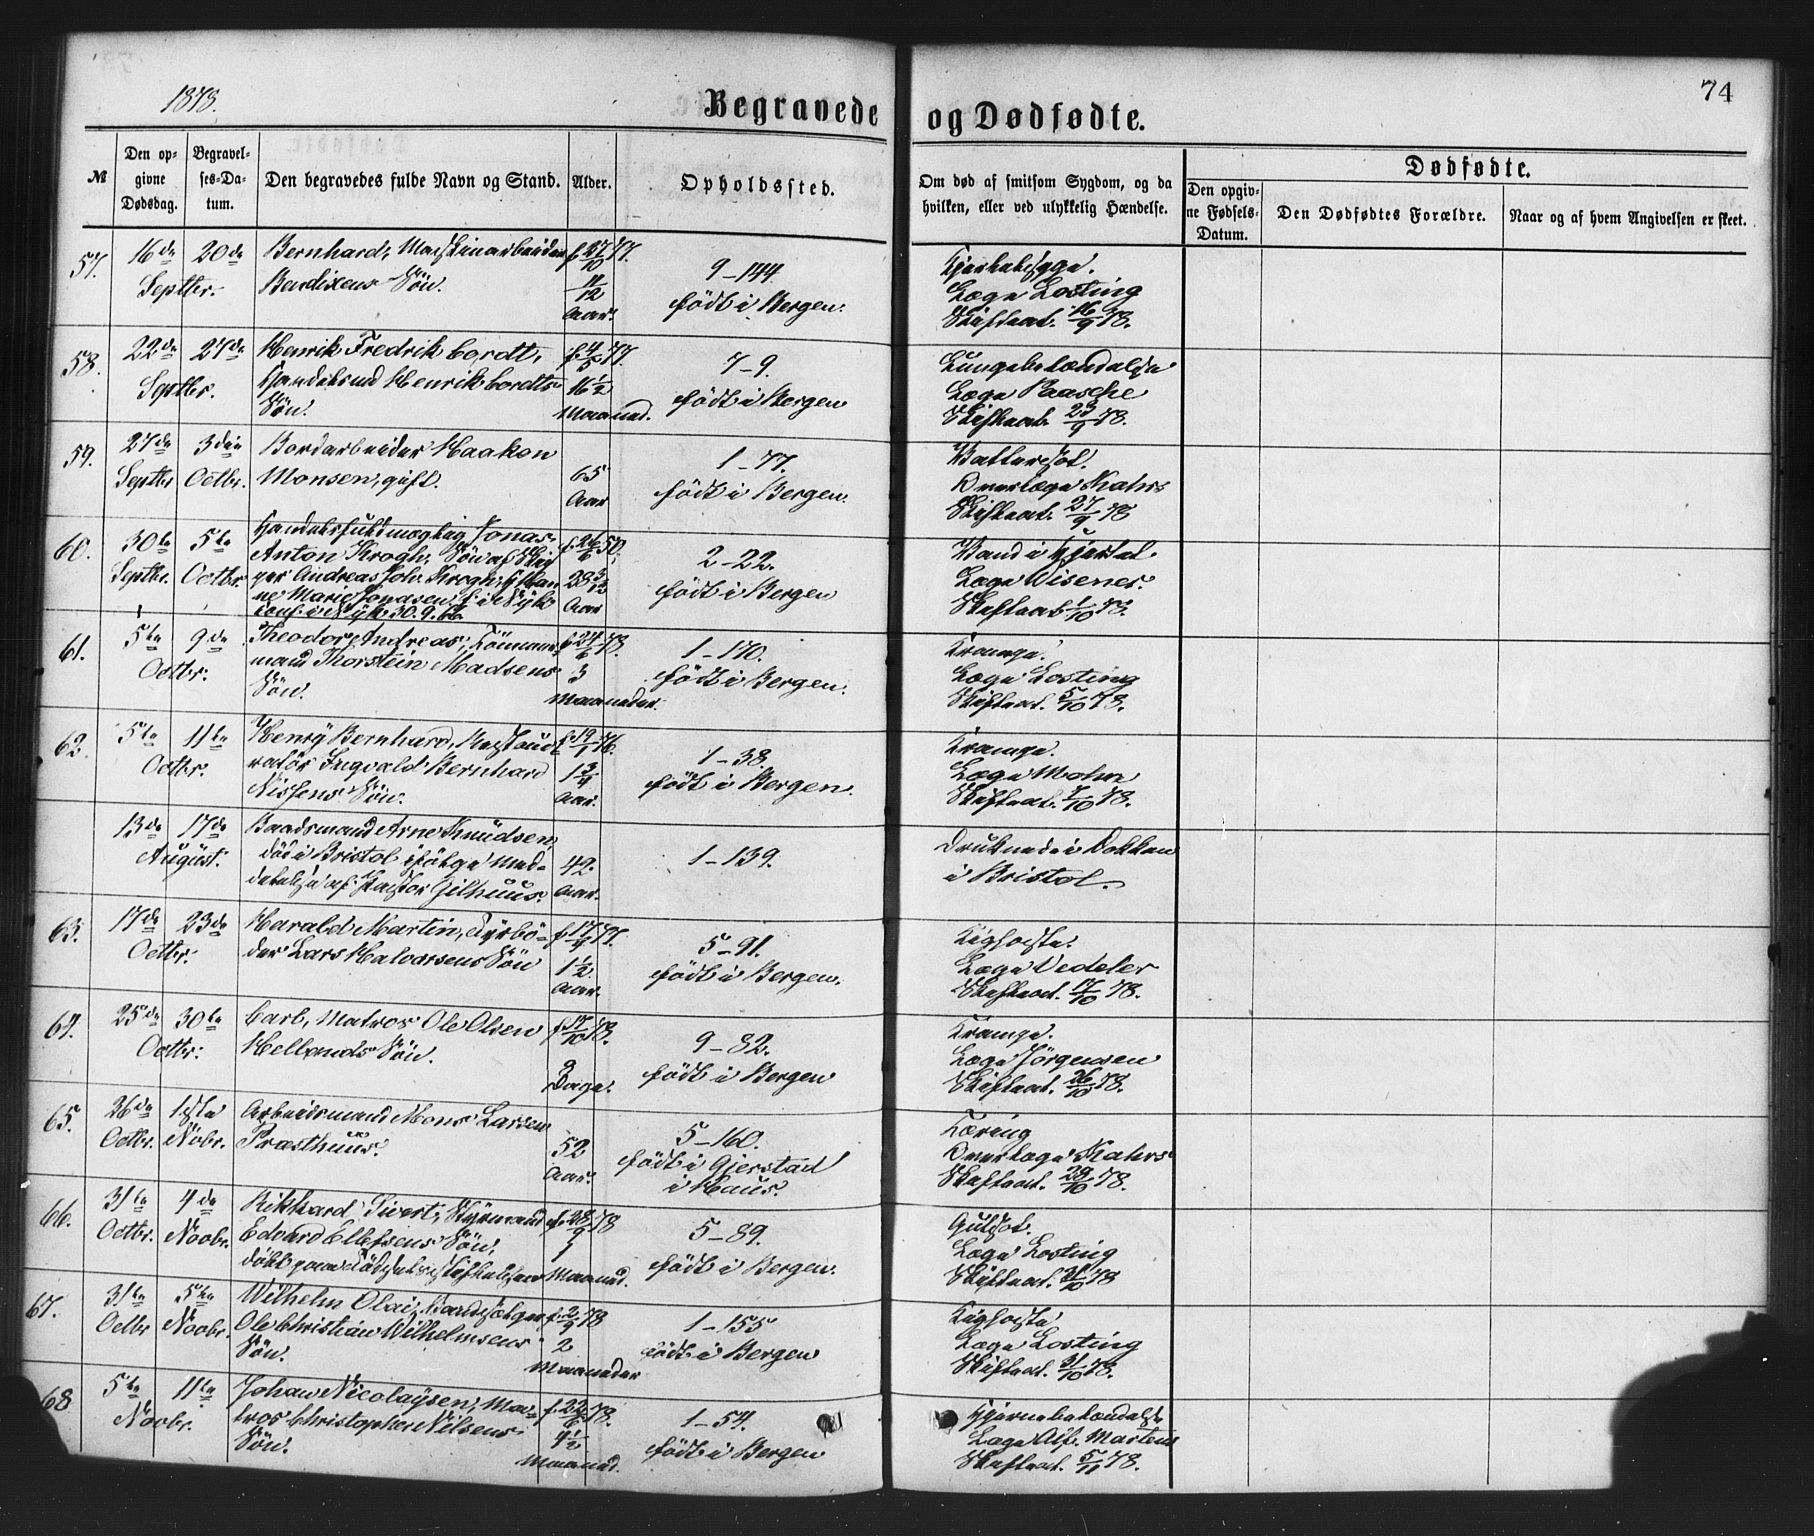 1878.
Begravede og Dødfødte.
74
№
Den opgivne Dødsdag.
Begravelses-Datum.
Den begravedes fulde Navn og Stand.
Alder.
Opholdssted.
Om død af smitsom Sygdom, og da hvilken, eller ved ulykkelig Hændelse.
Dødfødte.
Den opgivne Fødsels-Datum.
Den Dødfødtes Forældre.
Naar og af hvem Angivelsen er skeet.
57. 16de 20de Bernhard, Maskinarbeider f. 27/10 77.
Septbr. Bendixens Søn. 11/12 Aar.
9-144. født i Bergen.
Læge Losting
Skifteat. 16/9 78.
58. 22de 27de Henrik Fredrik Cordt, f. 4/5 77.
Septbr. Handelsmd Henrik Cordts Søn. 16½ Maaned.
7-9. født i Bergen
Lungebetændelse
Læge Paasche
Skifteat. 23/9 78.
59. 27de 3die Bordarbeider Haakon
Septbr Octbr. Monsen, gift. 65 Aar
1-77. født i Bergen.
Vattersot.
Overlæge Kahrs
Skifteat. 27/9 78
60. 30te 5te Handelsfuldmægtig Jonas
Septbr. Octbr. Anton Krogh, Søn af
Andreas Joh. Krogh,
f. 26/6 50. 28 3/12 Aar
2-22. født i Bergen
Vand i Hjertet.
Læge Wisenes.
Skifteat 1/10 78.
61. 5te 9de Theodor Andreas, Tømmermand Thorstein Madsens Søn.
Octbr. f. 24/6 78. 3 Maaneder.
1-170. født i Bergen.
Krampe.
Læge Losting
Skifteat. 5/10 78.
62. 5te 11te Henry Bernhard,
Octbr. Ingvald Bernhard Nissens Søn.
f. 19/1 76. 1¾ Aar.
1-38. født i Bergen.
Krampe.
Læge Mohn
Skifteat. 7/10 78.
13de 17de Baadsmand Arne Knudsen,
August. død i Bristol ifølge Meddelelse af Pastor Gilhuus. 42 Aar.
1-139.
Druknede i Dokken
i Bristol.
63. 17de 23de Harald Martin, Dyrbøder Lars Halvorsens Søn
Octbr. f. 17/4 77. 1½ Aar.
5-91. født i Bergen.
Kighoste.
Læge Vedeler
Skifteat. 17/10 78.
64. 25de 30te Carl, Matros Ole Olsen
Octbr. Hellands Søn. f. 17/10 78. Dage.
9-82. født i Bergen
Krampe.
Læge Jörgensen
Skifteat. 26/10 78.
65. 26de 1ste Arbeidsmand Mons Larsen
Octbr. Nobr. Præsthuus. 52 Aar.
5-160. født i Gjerstad i Haus.
Tæring
Overlæge Kahrs
Skifteat. 29/10 78.
66. 31te 4de Rikhard Sivert, Styrmand f. 28/9 78
Octbr. Novbr. Edvard Ellefsens Søn, 1 Maaned.
5-89. født i Bergen.
Gulsot.
Læge Losting
Skifteat. 31/10 78
67. 31te 5te Wilhelm Olai, Handelsborger f. 2/9 78
Octbr Novbr. Ole Christian Wilhelmsens Søn. 2 Maaneder
1-155 født i Bergen
Kighoste
Læge Losting
Skifteat. 31/10 78.
68 5te 11te Johan Nicolaysen, Matros Christopher Nilsens Søn.
Novbr. f. 22/6 78. 4½ Maaned.
1-54. født i Bergen
Hjernebetændelse
Læge Alf. Martens
Skifteat. 5/11 78.